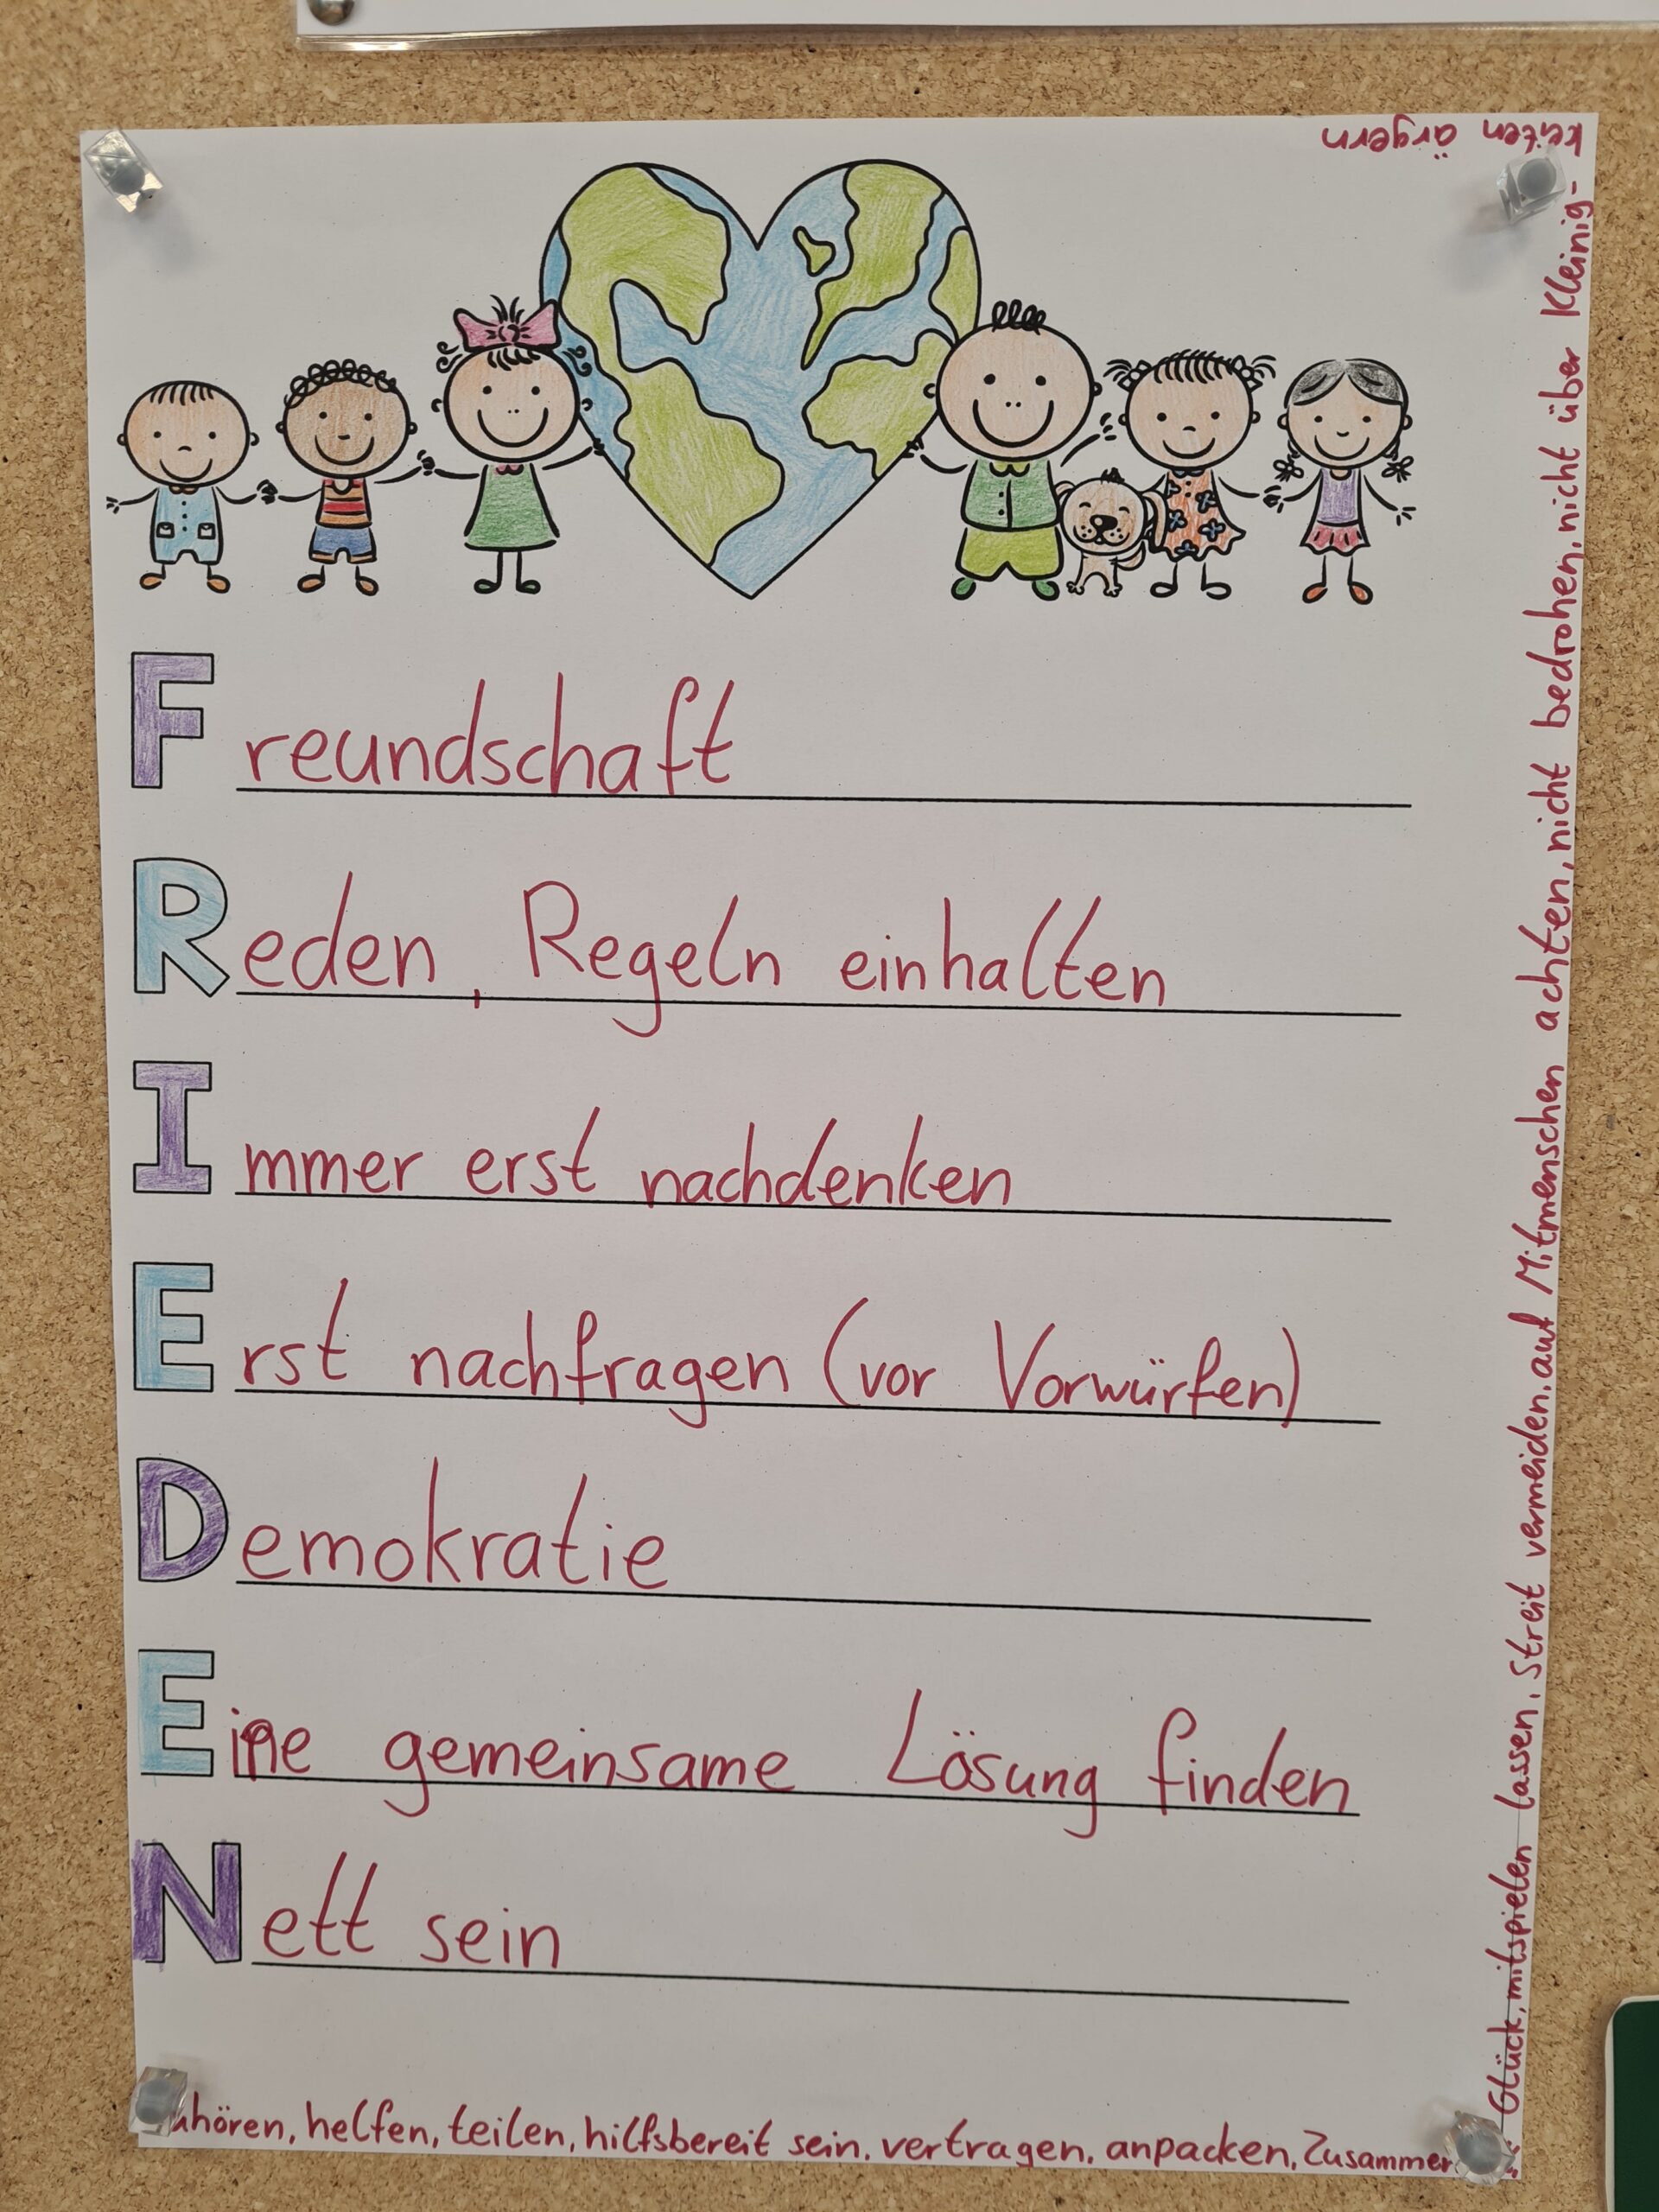 Freundschaft
Reden, Regeln einhalten
Immer erst nachdenken
Erst nachfragen (vor Vorwürfen)
Demokratie
Eine gemeinsame Lösung finden
Nett sein
helfen, teilen, hilfsbereit sein, vertragen, anpacken,
Glück, mitspielen lassen, Streit vermeiden, auf Mitmenschen achten, nicht bedrohen, nicht über Kleinig-
keiten ärgern